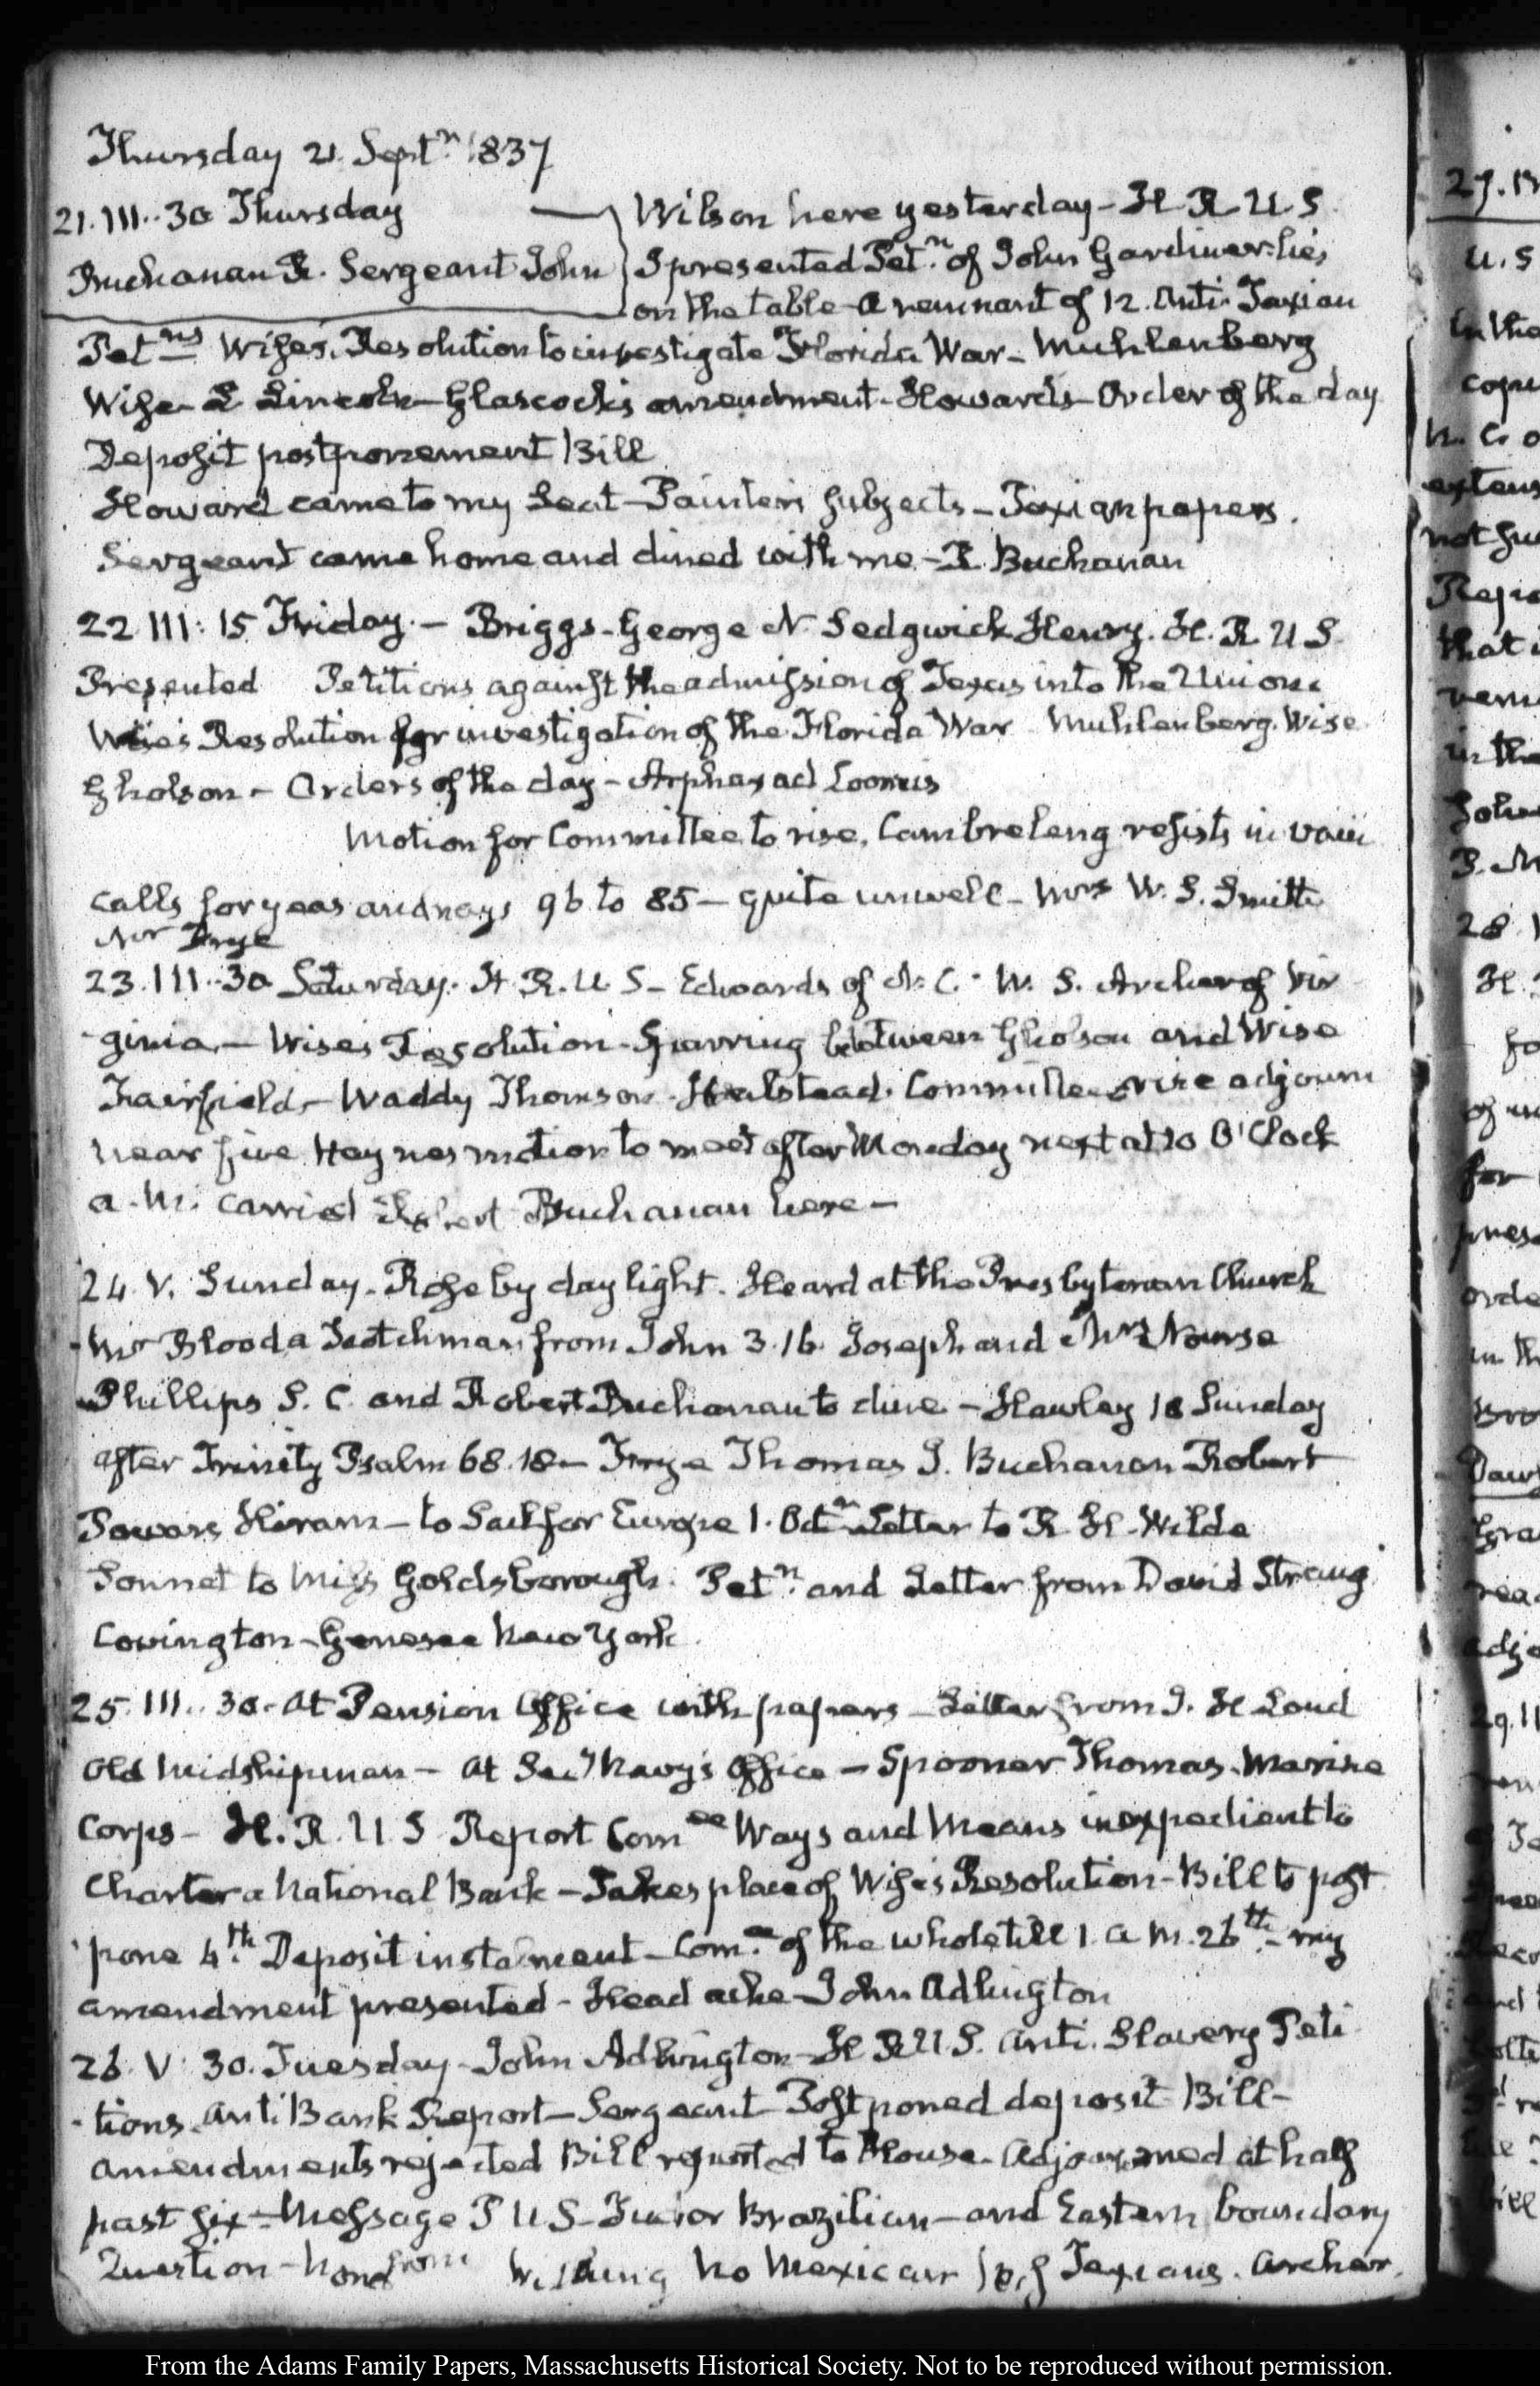 Thursday 21. Septr. 1837
21. III..30 Thursday
Buchanan R. Sergeant John
Wilson here yesterday - H. R. U. S.
I presented Petn. of John Gardiner - lies
on the table - A remnant of 12. Anti-Texian
Petns Wise's Resolution to investigate Florida War - Muhlenberg
Wise - L Lincoln - Glascock's amendment - Howard's - Order of the day
Deposit postponement Bill
Howard came to my Seat - Painter's subjects - Texian papers.
Sergeant came home and dined with me - R. Buchanan
22 III: 15 Friday. - Briggs - George N. Sedgwick Henry. H. R. U S.
Presented Petitions against the admission of Texas into the Union.
Wise's Resolution for investigation of the Florida War Muhlenberg. Wise
Gholson - Orders of the day - Arphaxad Loomis
Motion for Committee to rise, Cambreleng resists in vain
calls for yeas and nays 96 to 85 - quite unwell - Mrs W. S. Smith
Mr Frye
23. III..30 Saturday. H. R. U. S - Edwards of N. C. - W. S. Archer of Vir
ginia - Wise's Resolution - Sparring between Gholson and Wise
Fairfield - Waddy Thomson - Halstead. Committee rise adjourn
near five Haynes motion to meet after Monday next at 10 O'Clock
a. M. carried Robert Buchanan here -
24 V. Sunday. Rose by day light. Heard at the Presbyterian Church
Mr Blood a Scotchman from John 3. 16. Joseph and Mrs Nourse
Phillips S. C. and Robert Buchanan to dine - Hawley 18 Sunday
after Trinity Psalm 68. 18 - Frye Thomas J. Buchanan Robert
Powers Hiram - to Sail for Europe 1. Octr. Letter to R. H. Wilde
Sonnet to Miss Goldsborough. Petn. and Letter from David Strang
Covington - Genesee New York.
25. III.. 30. At Pension Office with papers - Letter from J. H Loud
Old Midshipman - At Secy Navy's Office - Spooner Thomas. Marine
Corps - H. R. U. S Report Comee Ways and Means inexpedient to
Charter a National Bank - Takes place of Wise's Resolution - Bill to post
pone 4th. Deposit instalment - Come. of the whole till 1. a M. 26th. - my
amendment presented - Head ache - John Adlington
26. V: 30. Tuesday - John Adlington - H. R U. S. Anti. Slavery Peti
tions. Anti Bank Report - Sergeant Postponed deposit Bill -
amendments rejected Bill reported to House - Adjourned at half
past six - Message P U S - Junior Brazilian - and Eastern boundary
Question - None from no Mexican Texians. Archer.
From the Adams Family Papers, Massachusetts Historical Society. Not to be reproduced without permission.